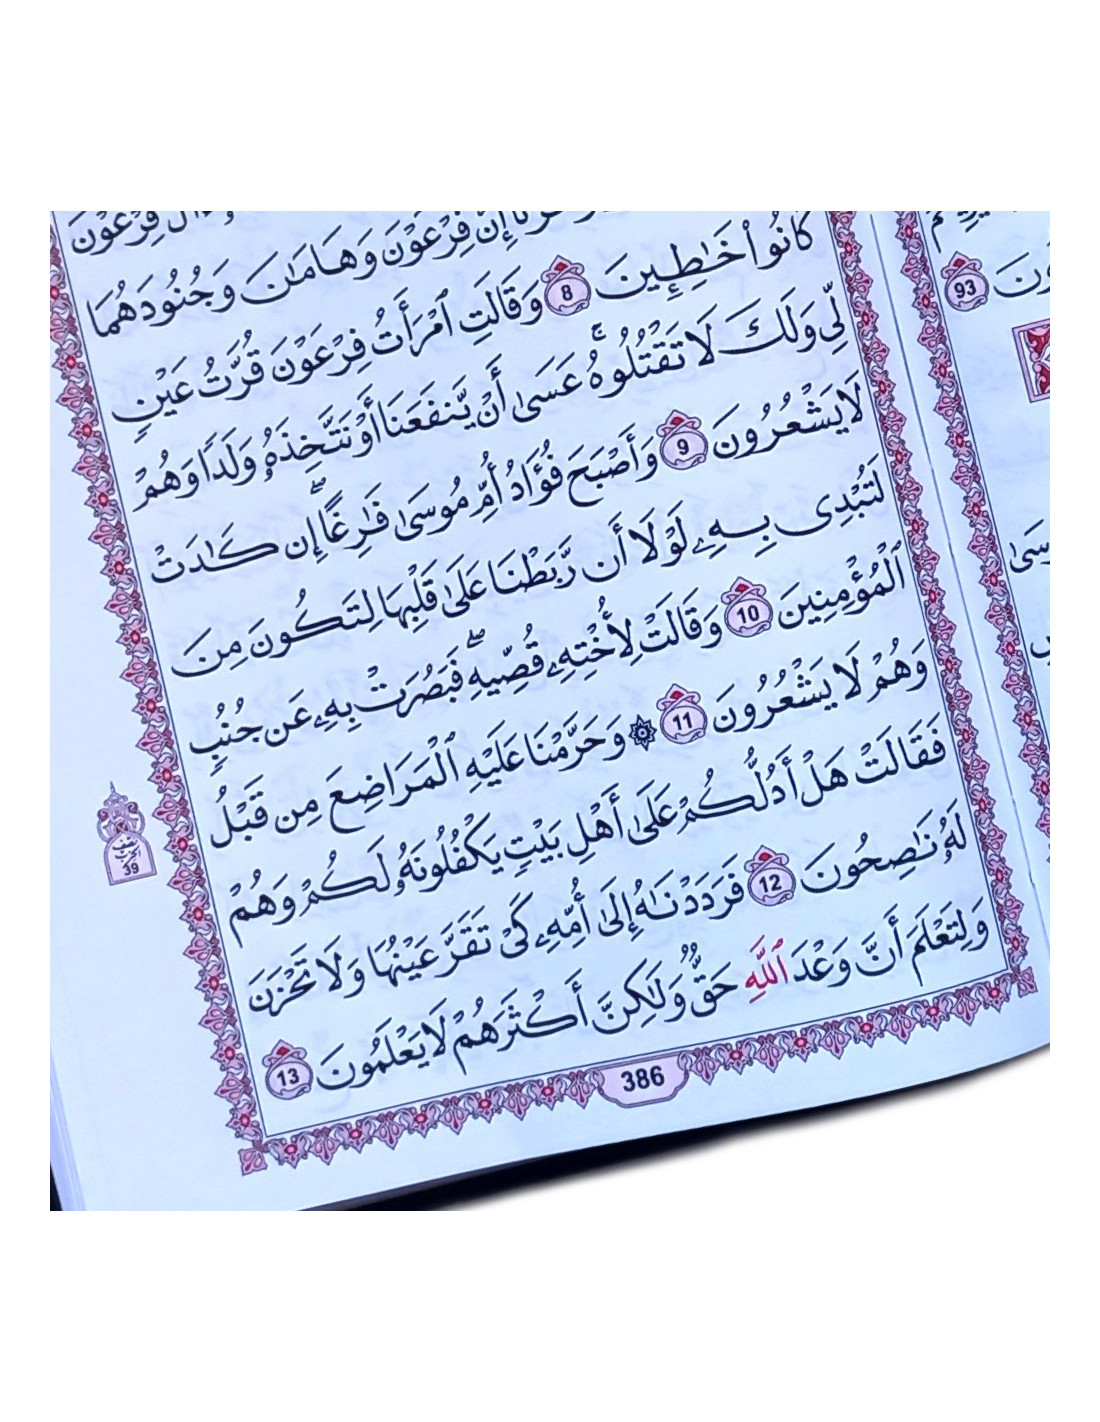 فِرْعَوْنَ
إِنَّ فِرْعَوْنَ وَهَـٰمَـٰنَ وَجُنُودَهُمَا
كَانُوا۟ خَـٰطِـِٔينَ 8 وَقَالَتِ ٱمْرَأَتُ فِرْعَوْنَ قُرَّتُ عَيْنٍ
لِّى وَلَكَ لَا تَقْتُلُوهُ عَسَىٰٓ أَن يَنفَعَنَآ أَوْ نَتَّخِذَهُۥ وَلَدًا وَهُمْ
لَا يَشْعُرُونَ 9 وَأَصْبَحَ فُؤَادُ أُمِّ مُوسَىٰ فَـٰرِغًا ۖ إِن كَـٰدَتْ
لَتُبْدِى بِهِۦ لَوْلَآ أَن رَّبَطْنَا عَلَىٰ قَلْبِهَا لِتَكُونَ مِنَ
ٱلْمُؤْمِنِينَ 10 وَقَالَتْ لِأُخْتِهِۦ قُصِّيهِ ۖ فَبَصُرَتْ بِهِۦ عَن جُنُبٍ
وَهُمْ لَا يَشْعُرُونَ 11 ۞ وَحَرَّمْنَا عَلَيْهِ ٱلْمَرَاضِعَ مِن قَبْلُ
فَقَالَتْ هَلْ أَدُلُّكُمْ عَلَىٰٓ أَهْلِ بَيْتٍ يَكْفُلُونَهُۥ لَكُمْ وَهُمْ
لَهُۥ نَـٰصِحُونَ 12 فَرَدَدْنَـٰهُ إِلَىٰٓ أُمِّهِۦ كَىْ تَقَرَّ عَيْنُهَا وَلَا تَحْزَنَ
وَلِتَعْلَمَ أَنَّ وَعْدَ ٱللَّهِ حَقٌّ وَلَـٰكِنَّ أَكْثَرَهُمْ لَا يَعْلَمُونَ 13
386
نصف
الحزب
39
93